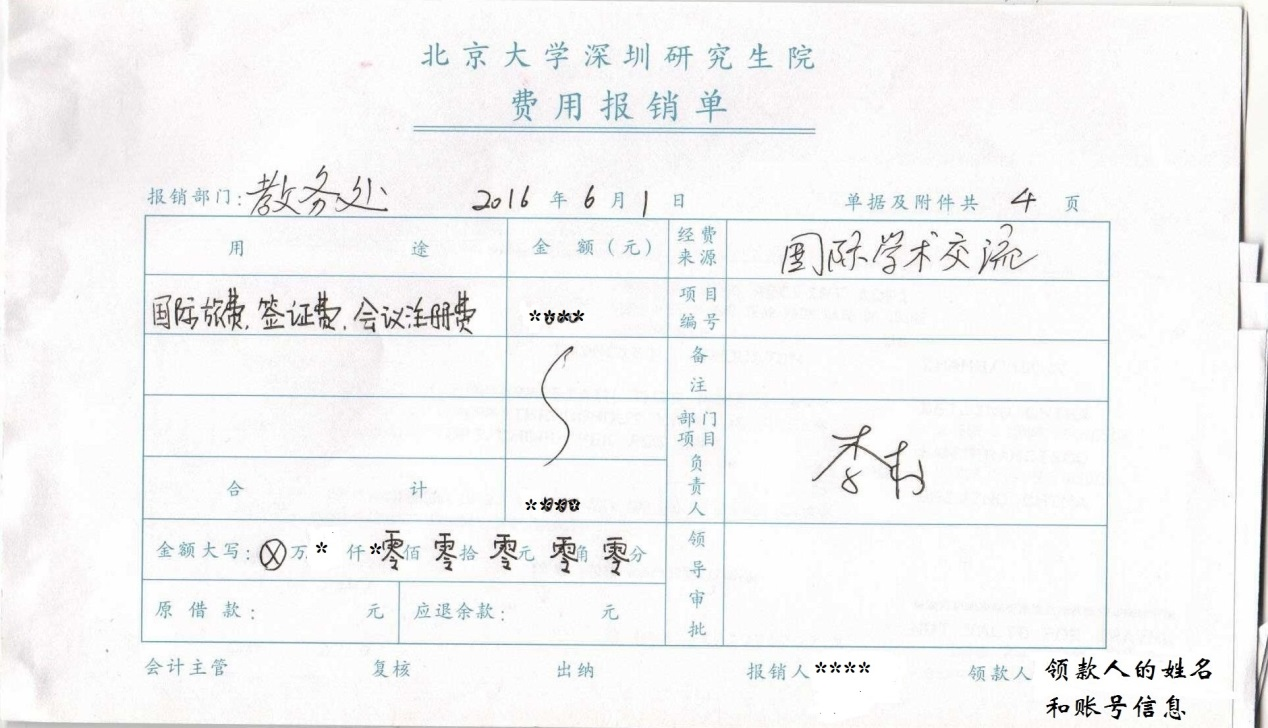 北京大学深圳研究生院
费用报销单
报销部门:教务处 2016年6月1日 单据及附件共 4 页
用途 金额(元) 经费来源 国际学术交流
国际旅费、签证费、会议注册费 **** 项目编号
备注
部门项目负责人 李
合计 ****
金额大写:ⓧ万*仟*零佰零拾零元零角零分 领导审批
原借款: 元 应退余款: 元
会计主管 复核 出纳 报销人**** 领款人 领款人的姓名
和账号信息